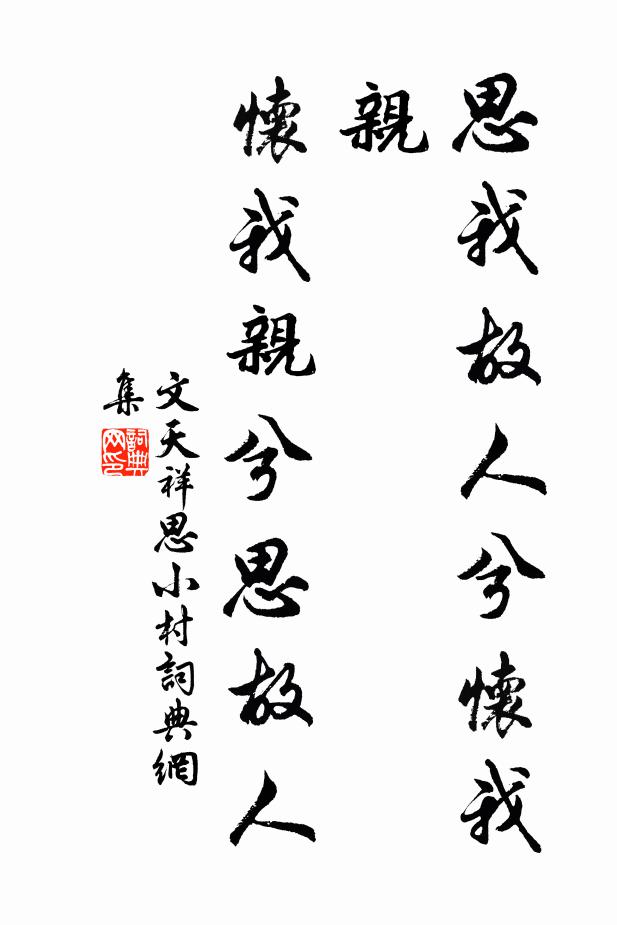 思我故人兮懷我
親
懷我親兮思故人
文天祥思小村詞典網
集
詞典
网印